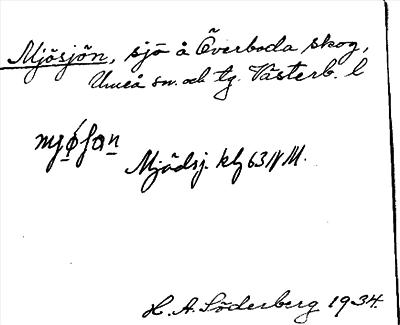 Mjösjön, sjö å Överboda skog,
Umeå sn. och tg. Västerb. l
Mjödsj. kbg 63 N M.
H. A. Söderberg 1934.